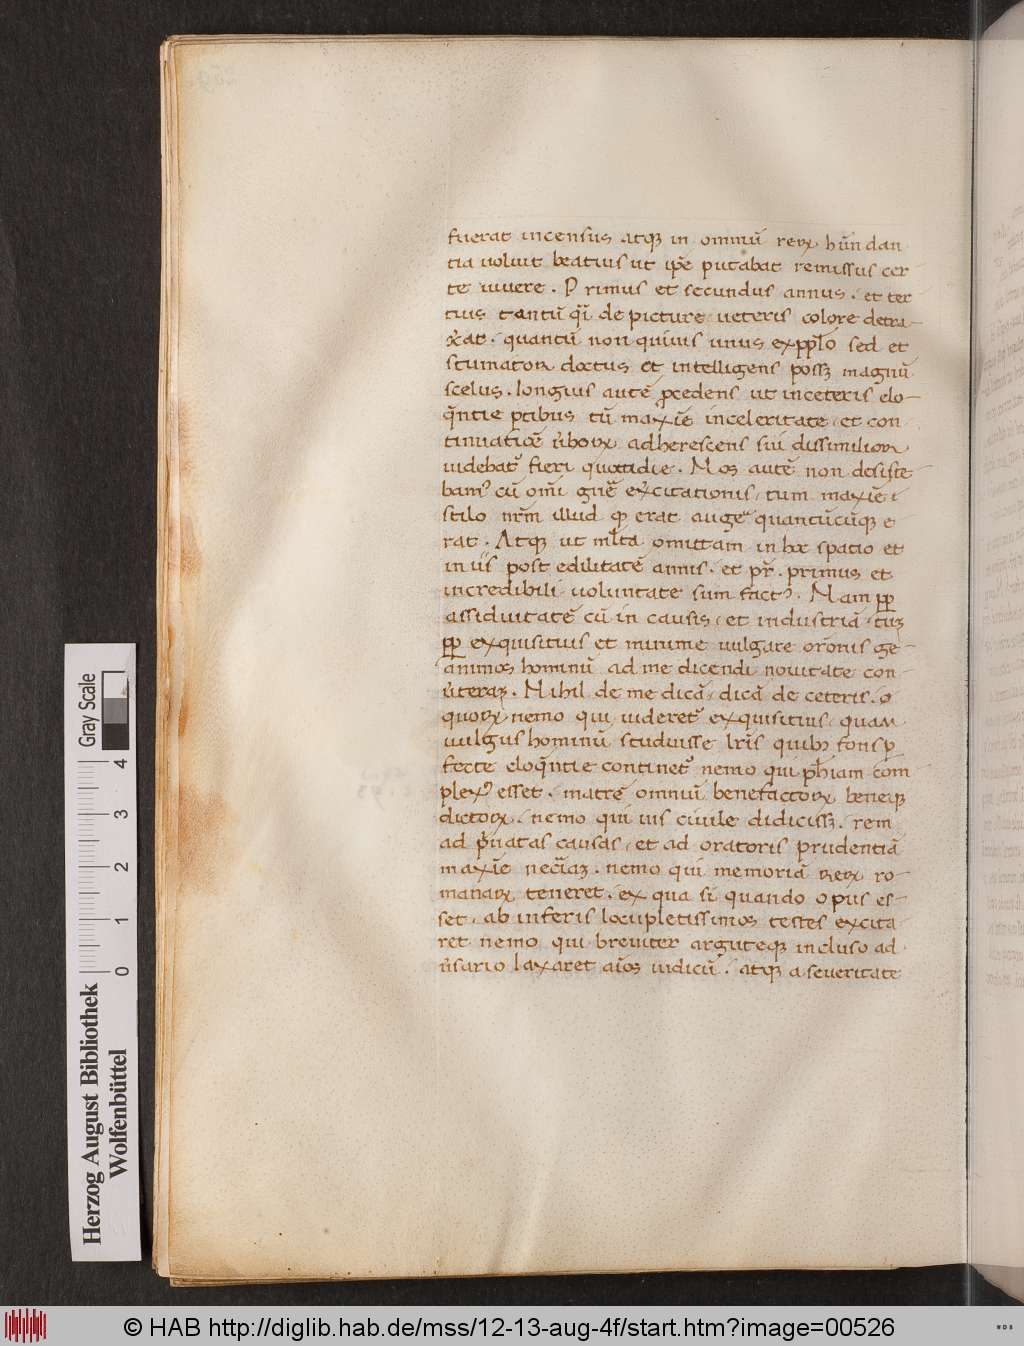 fuerat incensus atqꝫ in omniū reꝝ hūn dan
tia uoluit beatius ut ip̄e putabat remissus cer
te uiuere . Primus et secundus annus . et ter
tius tantū q̄i de picture ueteris colore detra-
x̄at . quantū non quiuis unus exp̱p̱lo sed et
stumatoꝝ doctus et intelligens possꝫ magnū
scelus . longius autē ꝓcedens ut inceteris elo-
q̄ntie ꝑtibus tū maxīe inceleritate et con
tinuatiōē ūboꝝ adherescens sui dissimilioꝝ
uidebat᷑ fieri quottidie . Nos autē non desiste
bamꝰ cū om̄i gn̄e ex̄citationis tum maxīe i
stilo nr̄m illud qꝫ erat auge᷑ quantūcūqꝫ e
rat . Atqꝫ ut ml̄ta omittam in hoc spatio et
in iis post edilitatē annis . et pr̄ . primus et
incredibili uoluntate sum factꝰ . Nam p̱p̱
assiduitatē cū in causis et industriā tuꝫ
p̱p̱ exquisitius et minime uulgare or̄onis ge-
animos hominū ad me dicendi nouitate con-
ūteraꝫ . Nihil de me dicā dicā de ceteris . o
quoꝝ nemo qui uideret᷑ exquisitius quam
uulgus hominū studuisse lr̄is quibꝫ fons ꝑ
fecte eloq̄ntie continet᷑ nemo qui ph̄iam com
plexꝰ esset . matrē omnuī benefactoꝝ beneqꝫ
dictoꝝ . nemo qui ius ciuile didicissꝫ . rem
ad p̄uatas causas et ad oratoris prudentiā
maxīe nec̄iaꝫ . nemo qui memoriā reꝝ ro-
manaꝝ teneret . ex qua si quando opus es-
set . ab inferis locupletissimos testes excita-
ret nemo qui breuiter arguteqꝫ incluso ad
ūsario laxaret aīos iudicū . atqꝫ a seueritate
Herzog August Bibliothek
Wolfenbüttel
0 1 2 3 4
Gray Scale
© HAB http://diglib.hab.de/mss/12-13-aug-4f/start.htm?image=00526